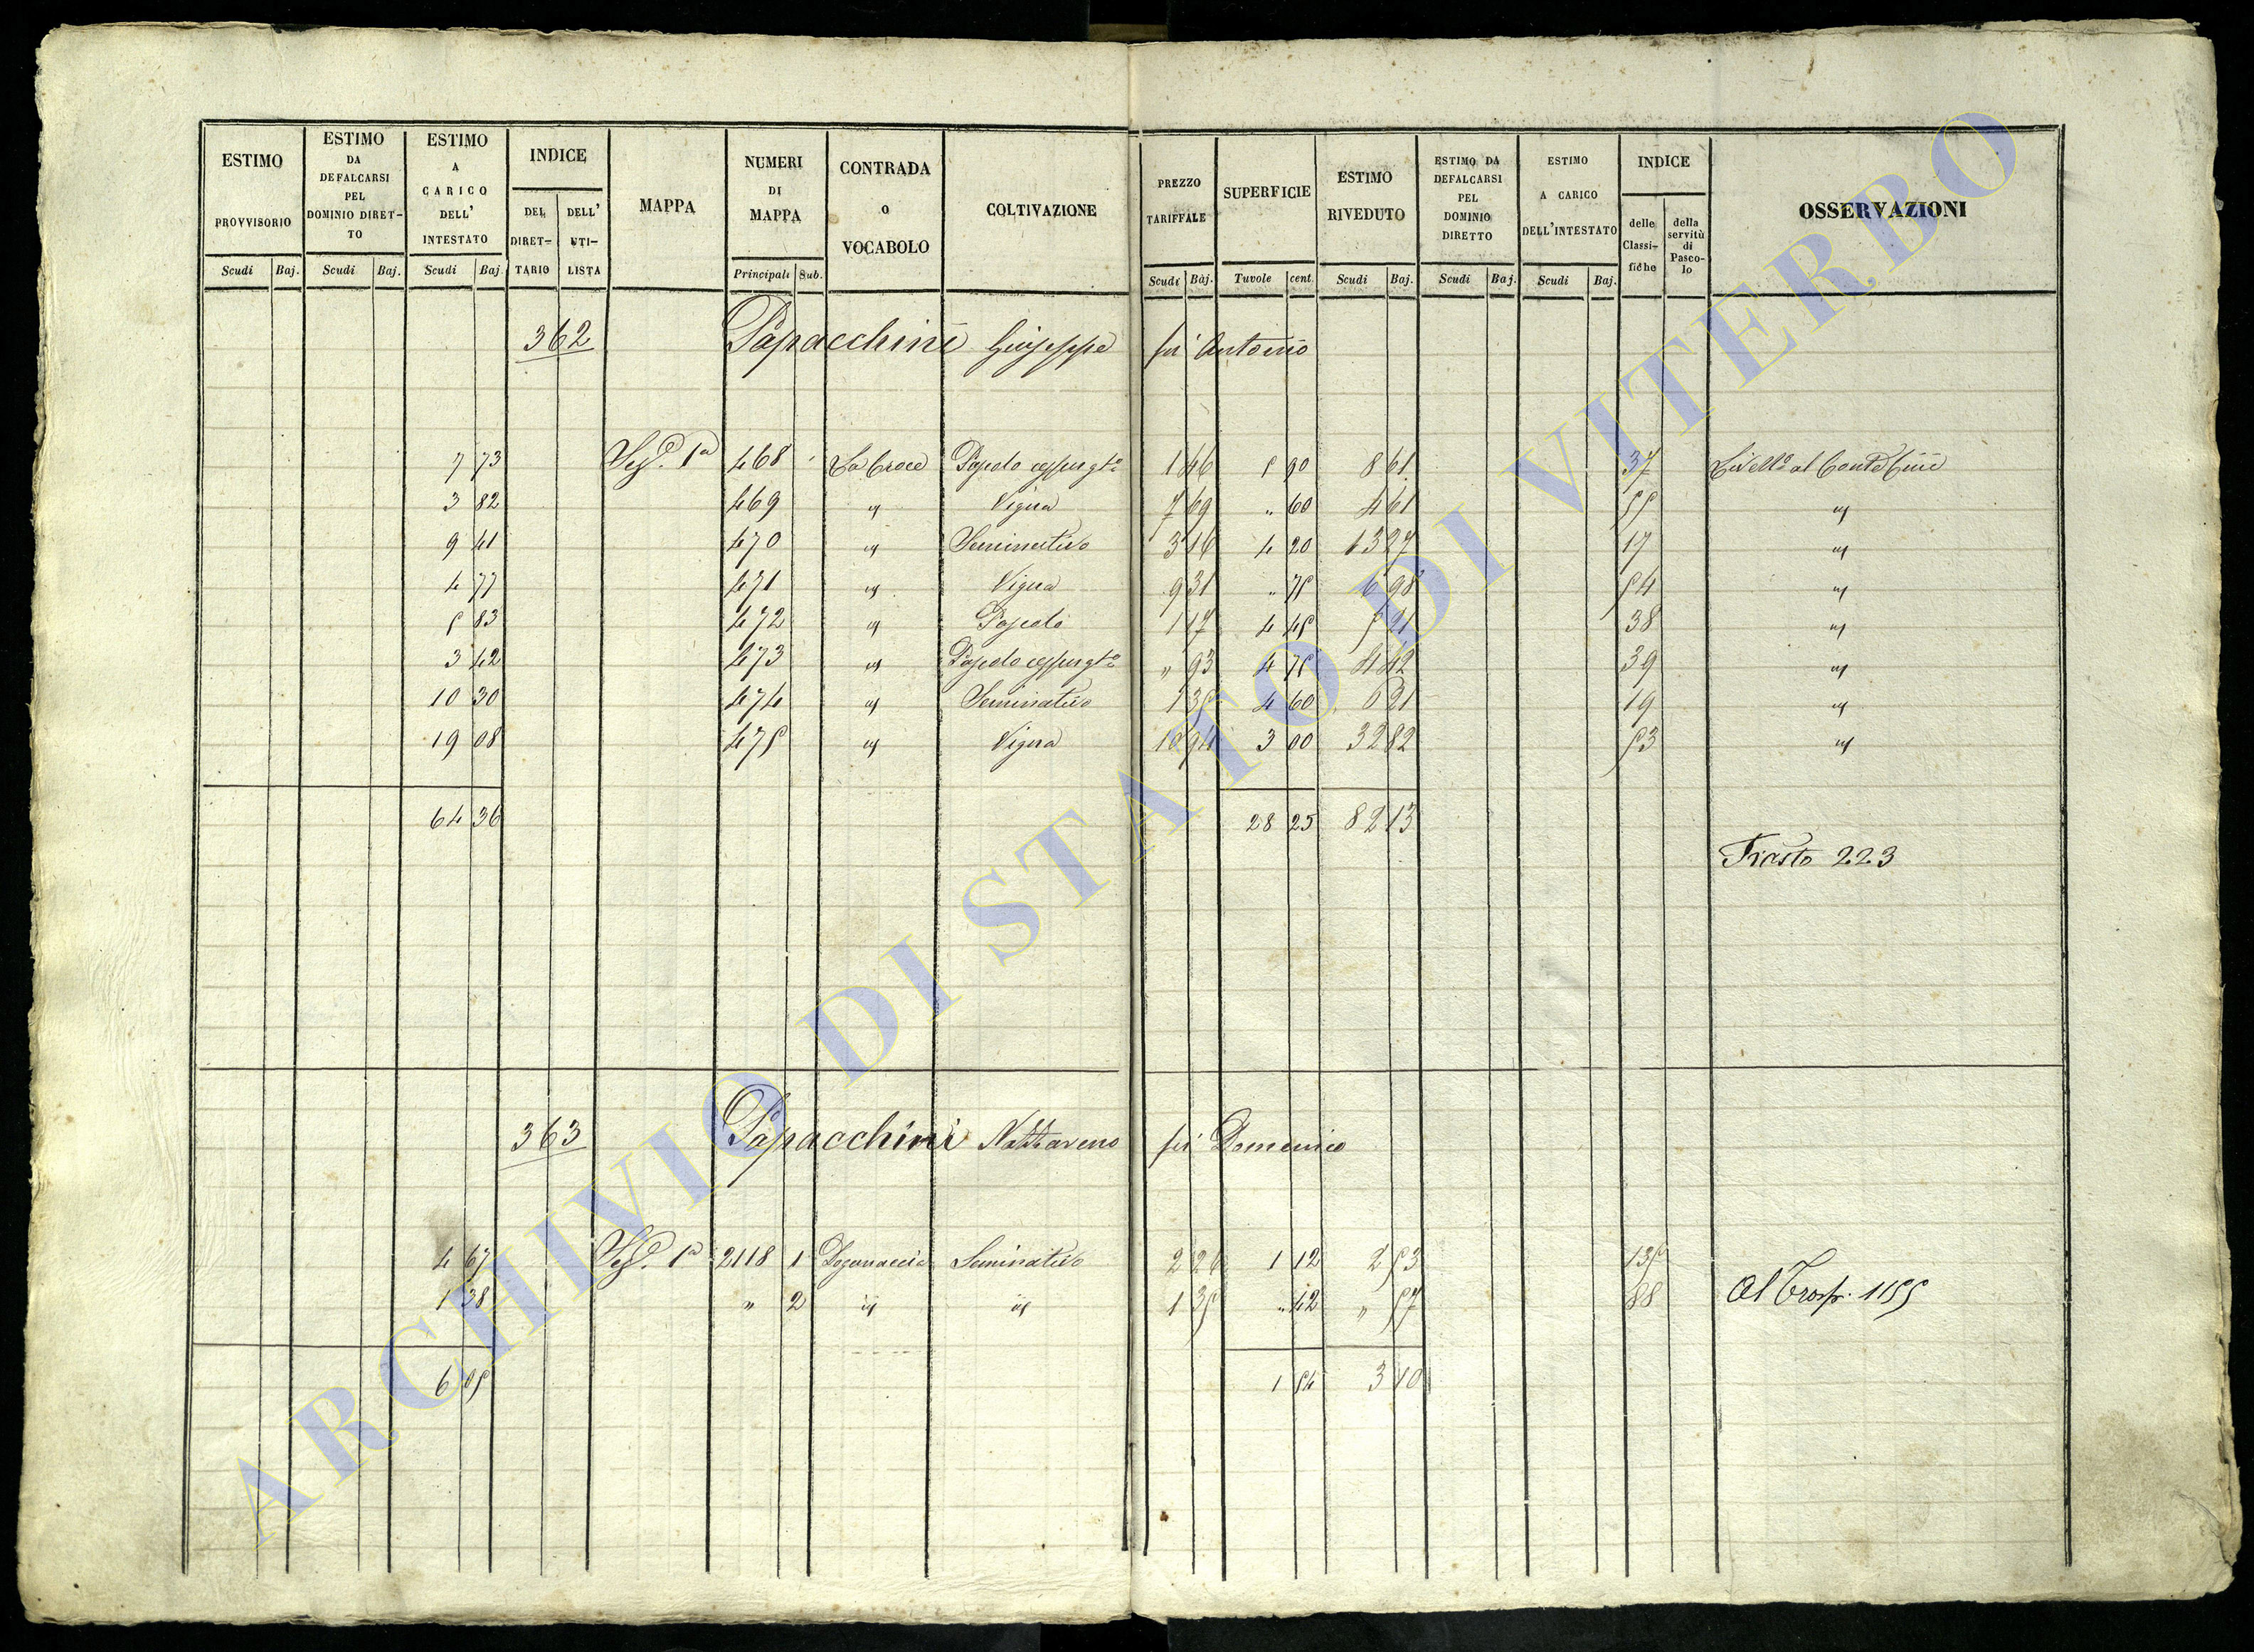 ESTIMO PROVVISORIO
Scudi Baj.
ESTIMO DA DEFALCARSI PEL DOMINIO DIRET- TO
Scudi Baj.
ESTIMO A CARICO DELL' INTESTATO
Scudi Baj.
INDICE
DEL DIRET- TARIO
DELL' UTI- LISTA
MAPPA
NUMERI DI MAPPA
Principali Sub.
CONTRADA O VOCABOLO
COLTIVAZIONE
PREZZO TARIFFALE
Scudi Baj.
SUPERFICIE
Tavole cent.
ESTIMO RIVEDUTO
Scudi Baj.
ESTIMO DA DEFALCARSI PEL DOMINIO DIRETTO
Scudi Baj.
ESTIMO A CARICO DELL'INTESTATO
Scudi Baj.
INDICE
delle Classi- fiche
della servitù di Pasco- lo
OSSERVAZIONI
362 Papacchini Giuseppe fu Antonio
7 73 Sez.e 1a 468 La Croce 1 46 5 90 8 61 37
3 82 469 " Vigna 7 69 " 60 4 61 55 "
9 41 470 " Seminativo 3 16 4 20 13 27 17 "
4 77 471 " Vigna 9 31 " 75 6 98 54 "
5 83 472 " Pascolo 1 17 4 45 5 21 38 "
3 42 473 " " 93 4 75 4 42 39 "
10 30 474 " Seminativo 1 35 4 60 6 21 19 "
19 08 475 " Vigna 10 94 3 00 32 82 53 "
64 36 28 25 82 13
223
363 Papacchini Nazzareno fu Domenico
4 67 Sez.e 1a 2118 1 Doganaccia Seminativo 2 26 1 12 2 53 135
1 38 " 2 " " 1 35 " 42 " 57 88 Al Trasp. 1155
6 05 1 54 3 10
ARCHIVIO DI STATO DI VITERBO